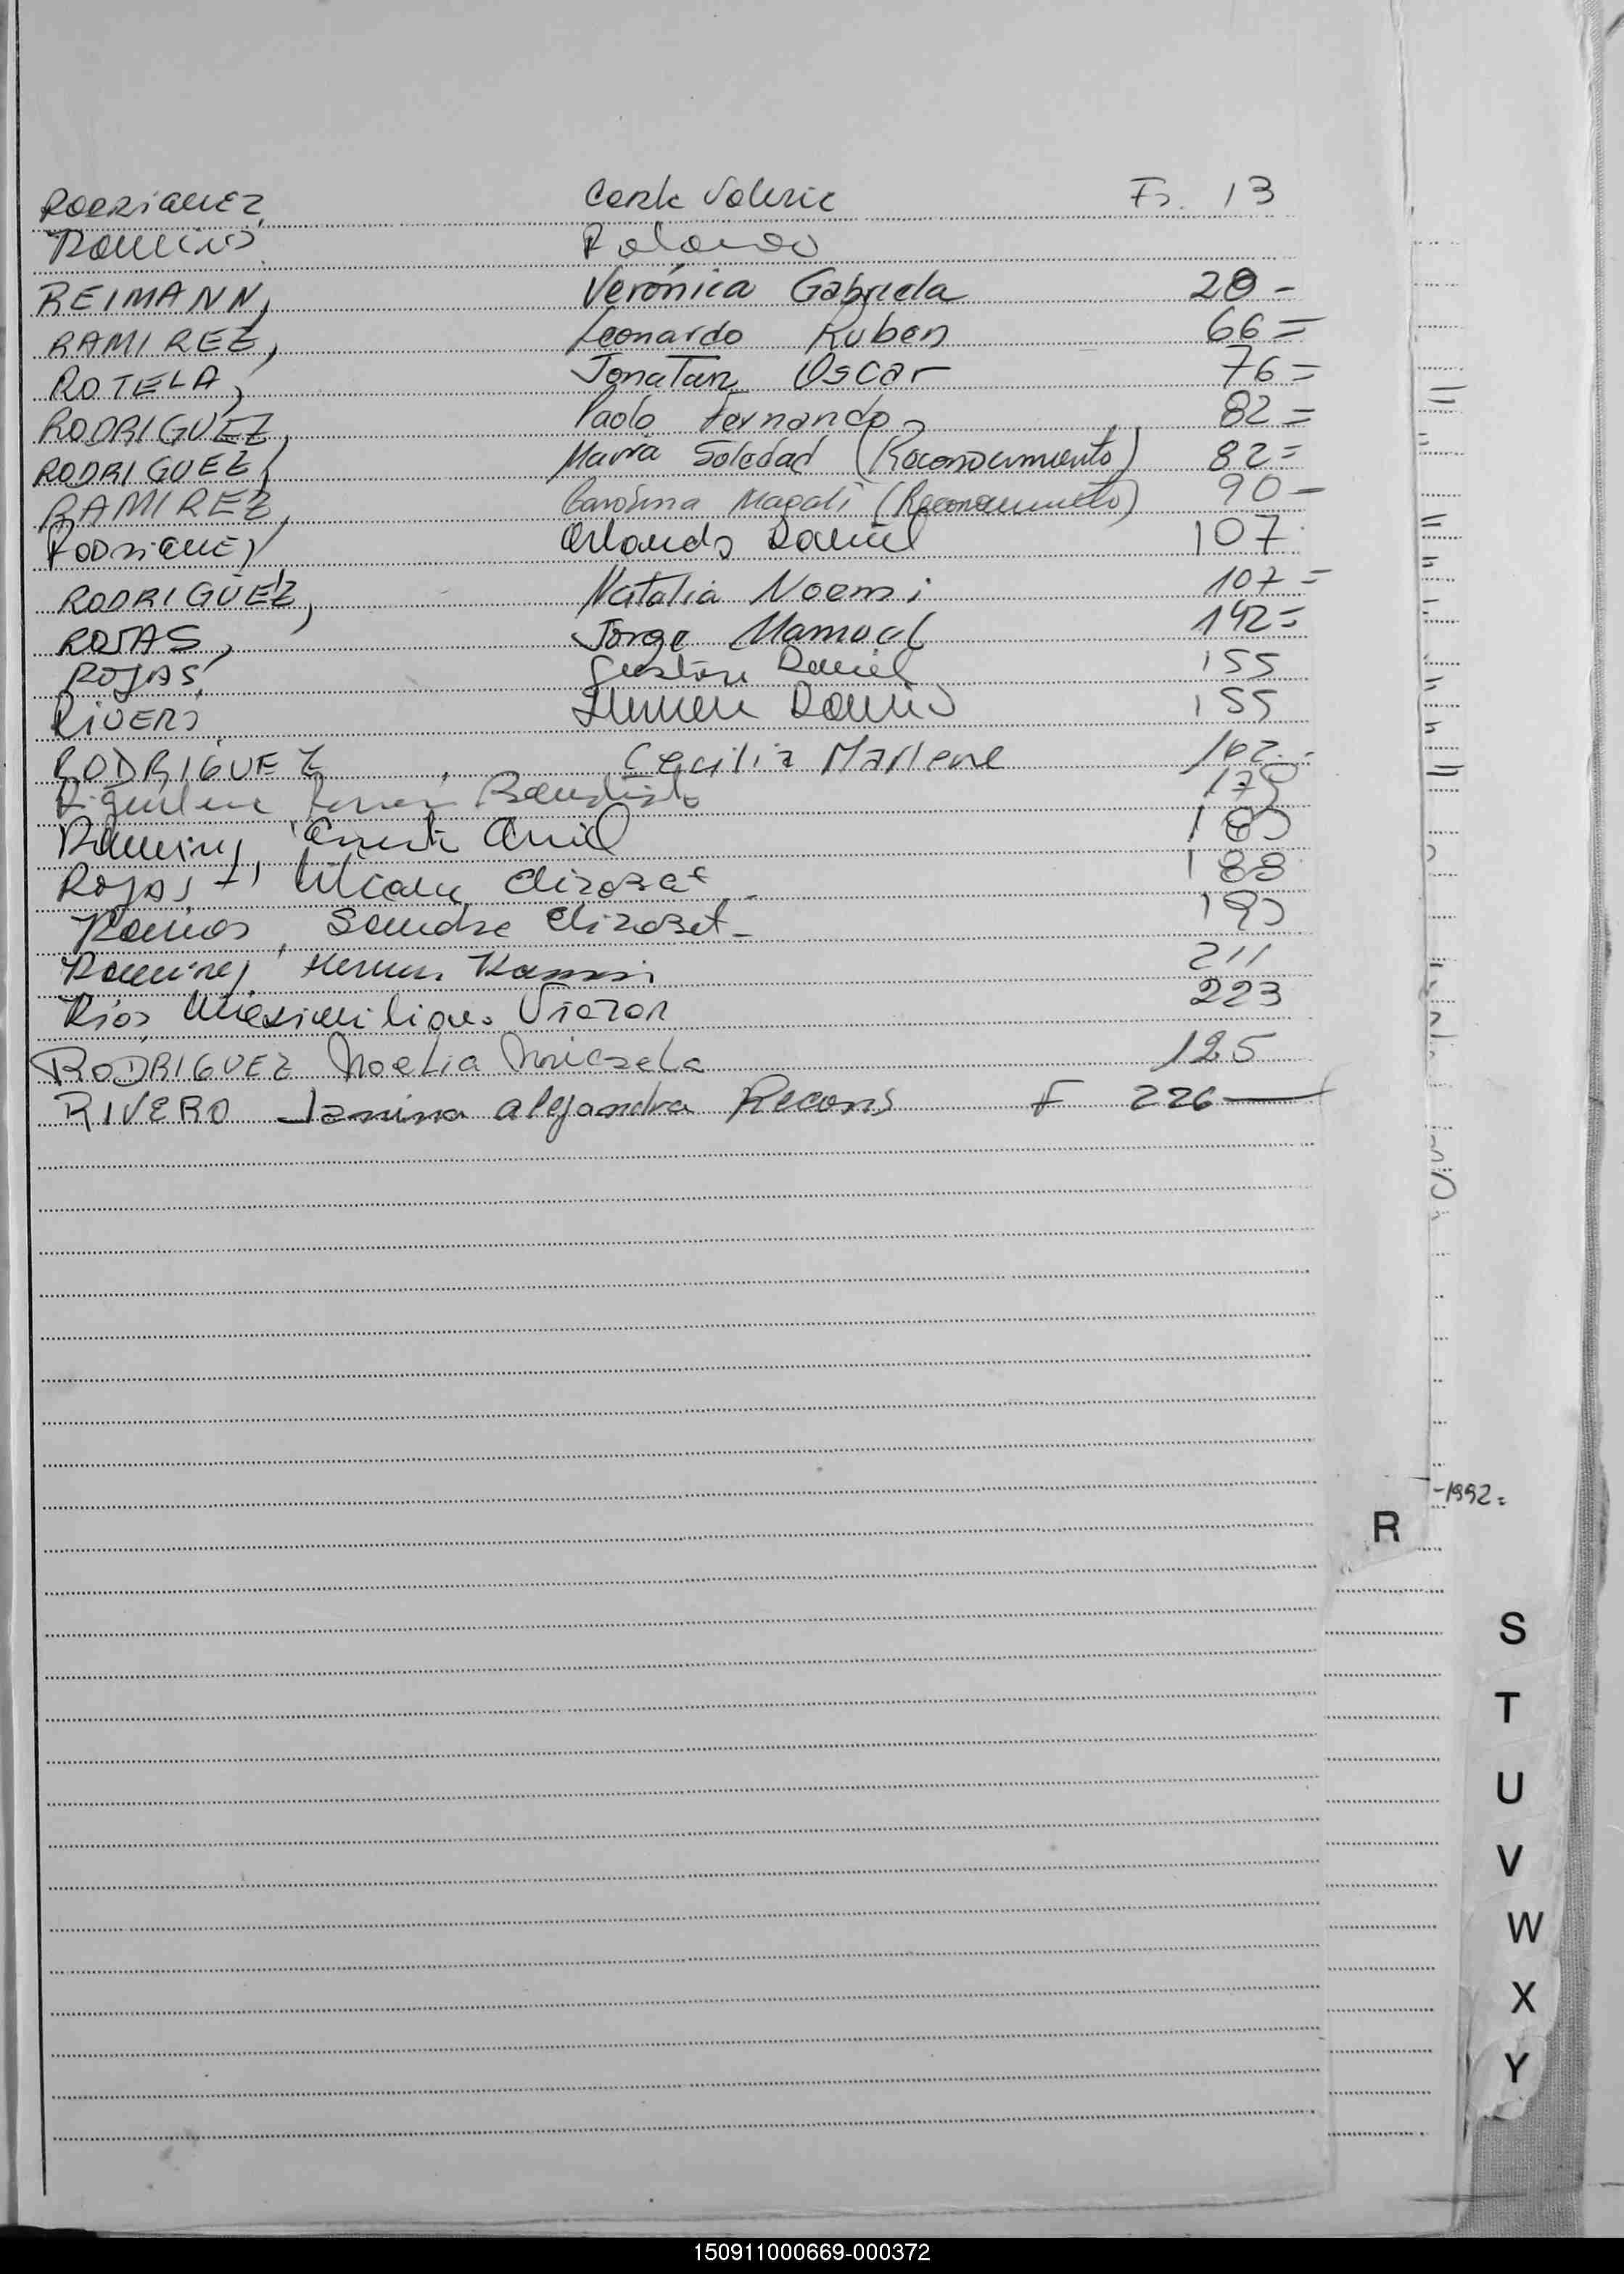 RODRIGUEZ, Carla Valeria Fs. 13
Ramirez Rolando
REIMANN, Verónica Gabriela 20 -
RAMIREZ, Leonardo Ruben 66 =
ROTELA, Jonatan Oscar 76 =
RODRIGUEZ, Paolo Fernando 82 =
RODRIGUEZ, María Soledad (Reconocimiento) 82 =
RAMIREZ, Carolina Magali (Reconocimiento) 90 -
Rodriguez, Orlando Daniel 107
RODRIGUEZ, Natalia Noemi 107 =
ROJAS, Jorge Manuel 142 =
ROJAS, Gustavo Daniel 155
RIVERO, Hernan Dario 155
RODRIGUEZ, Cecilia Marlene 162
Bautista 179
Ramirez, Ariel
Rojas, Elizabet 188
Ramos, Sandra Elizabet -
Ramirez, Hernan Ramon 211
Rios Maximiliano Victor 223
RODRIGUEZ Noelia Micaela 125
RIVERO Janina alejandra Recons F 226
-1992=
R
S
T
U
V
W
X
Y
150911000669-000372